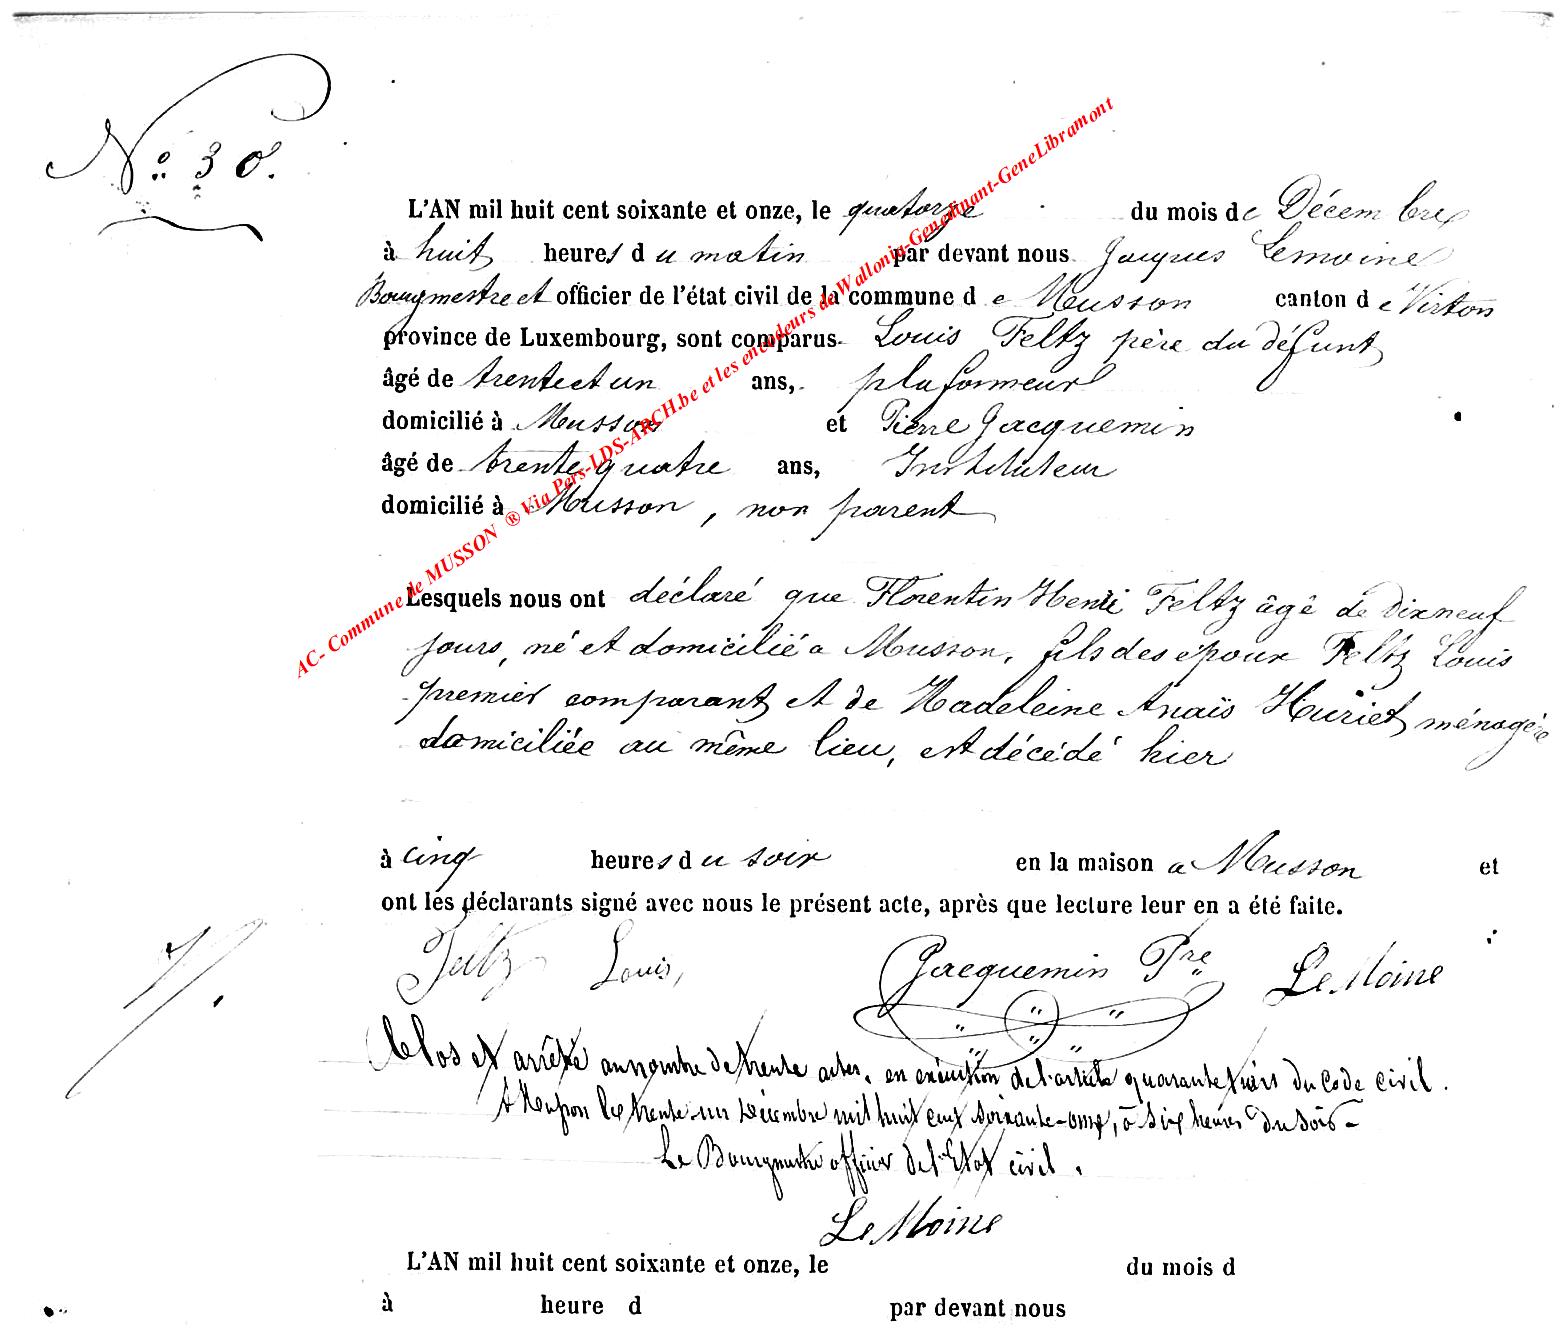 N° 30.
L'AN mil huit cent soixante et onze, le quatorze du mois de Décembre
à huit heures du matin par devant nous Jacques Lemoine
Bourgmestre et officier de l'état civil de la commune de Musson canton de Virton
province de Luxembourg, sont comparus Louis Feltz père du défunt
âgé de trente et un ans, plafonneur
domicilié à Musson et Pierre Jacquemin
âgé de trente quatre ans, Instituteur
domicilié à Musson, non parent
AC- Commune de MUSSON ® Via Pers-LDS-ARCH.be et les encodeurs de Wallonia-Genedinant-GeneLibramont
Lesquels nous ont déclaré que Florentin Henri Feltz âgé de Dix neuf
jours, né et domicilié a Musson, fils des époux Feltz Louis
premier comparant et de Madeleine Anaïs Huriet ménagère
domiciliée au même lieu, est décédé hier
à cinq heures du soir en la maison a Musson et
ont les déclarants signé avec nous le présent acte, après que lecture leur en a été faite.
Feltz Louis, Jacquemin Pre LeMoine
Clos et arrêté au nombre de trente actes, en exécution de l'article quarante trois du code civil.
A Musson le trente-un Décembre mil huit cent soixante-onze, à six heures du soir-
Le Bourgmestre officier de l'Etat civil.
LeMoine
L'AN mil huit cent soixante et onze, le du mois d
à heure d par devant nous